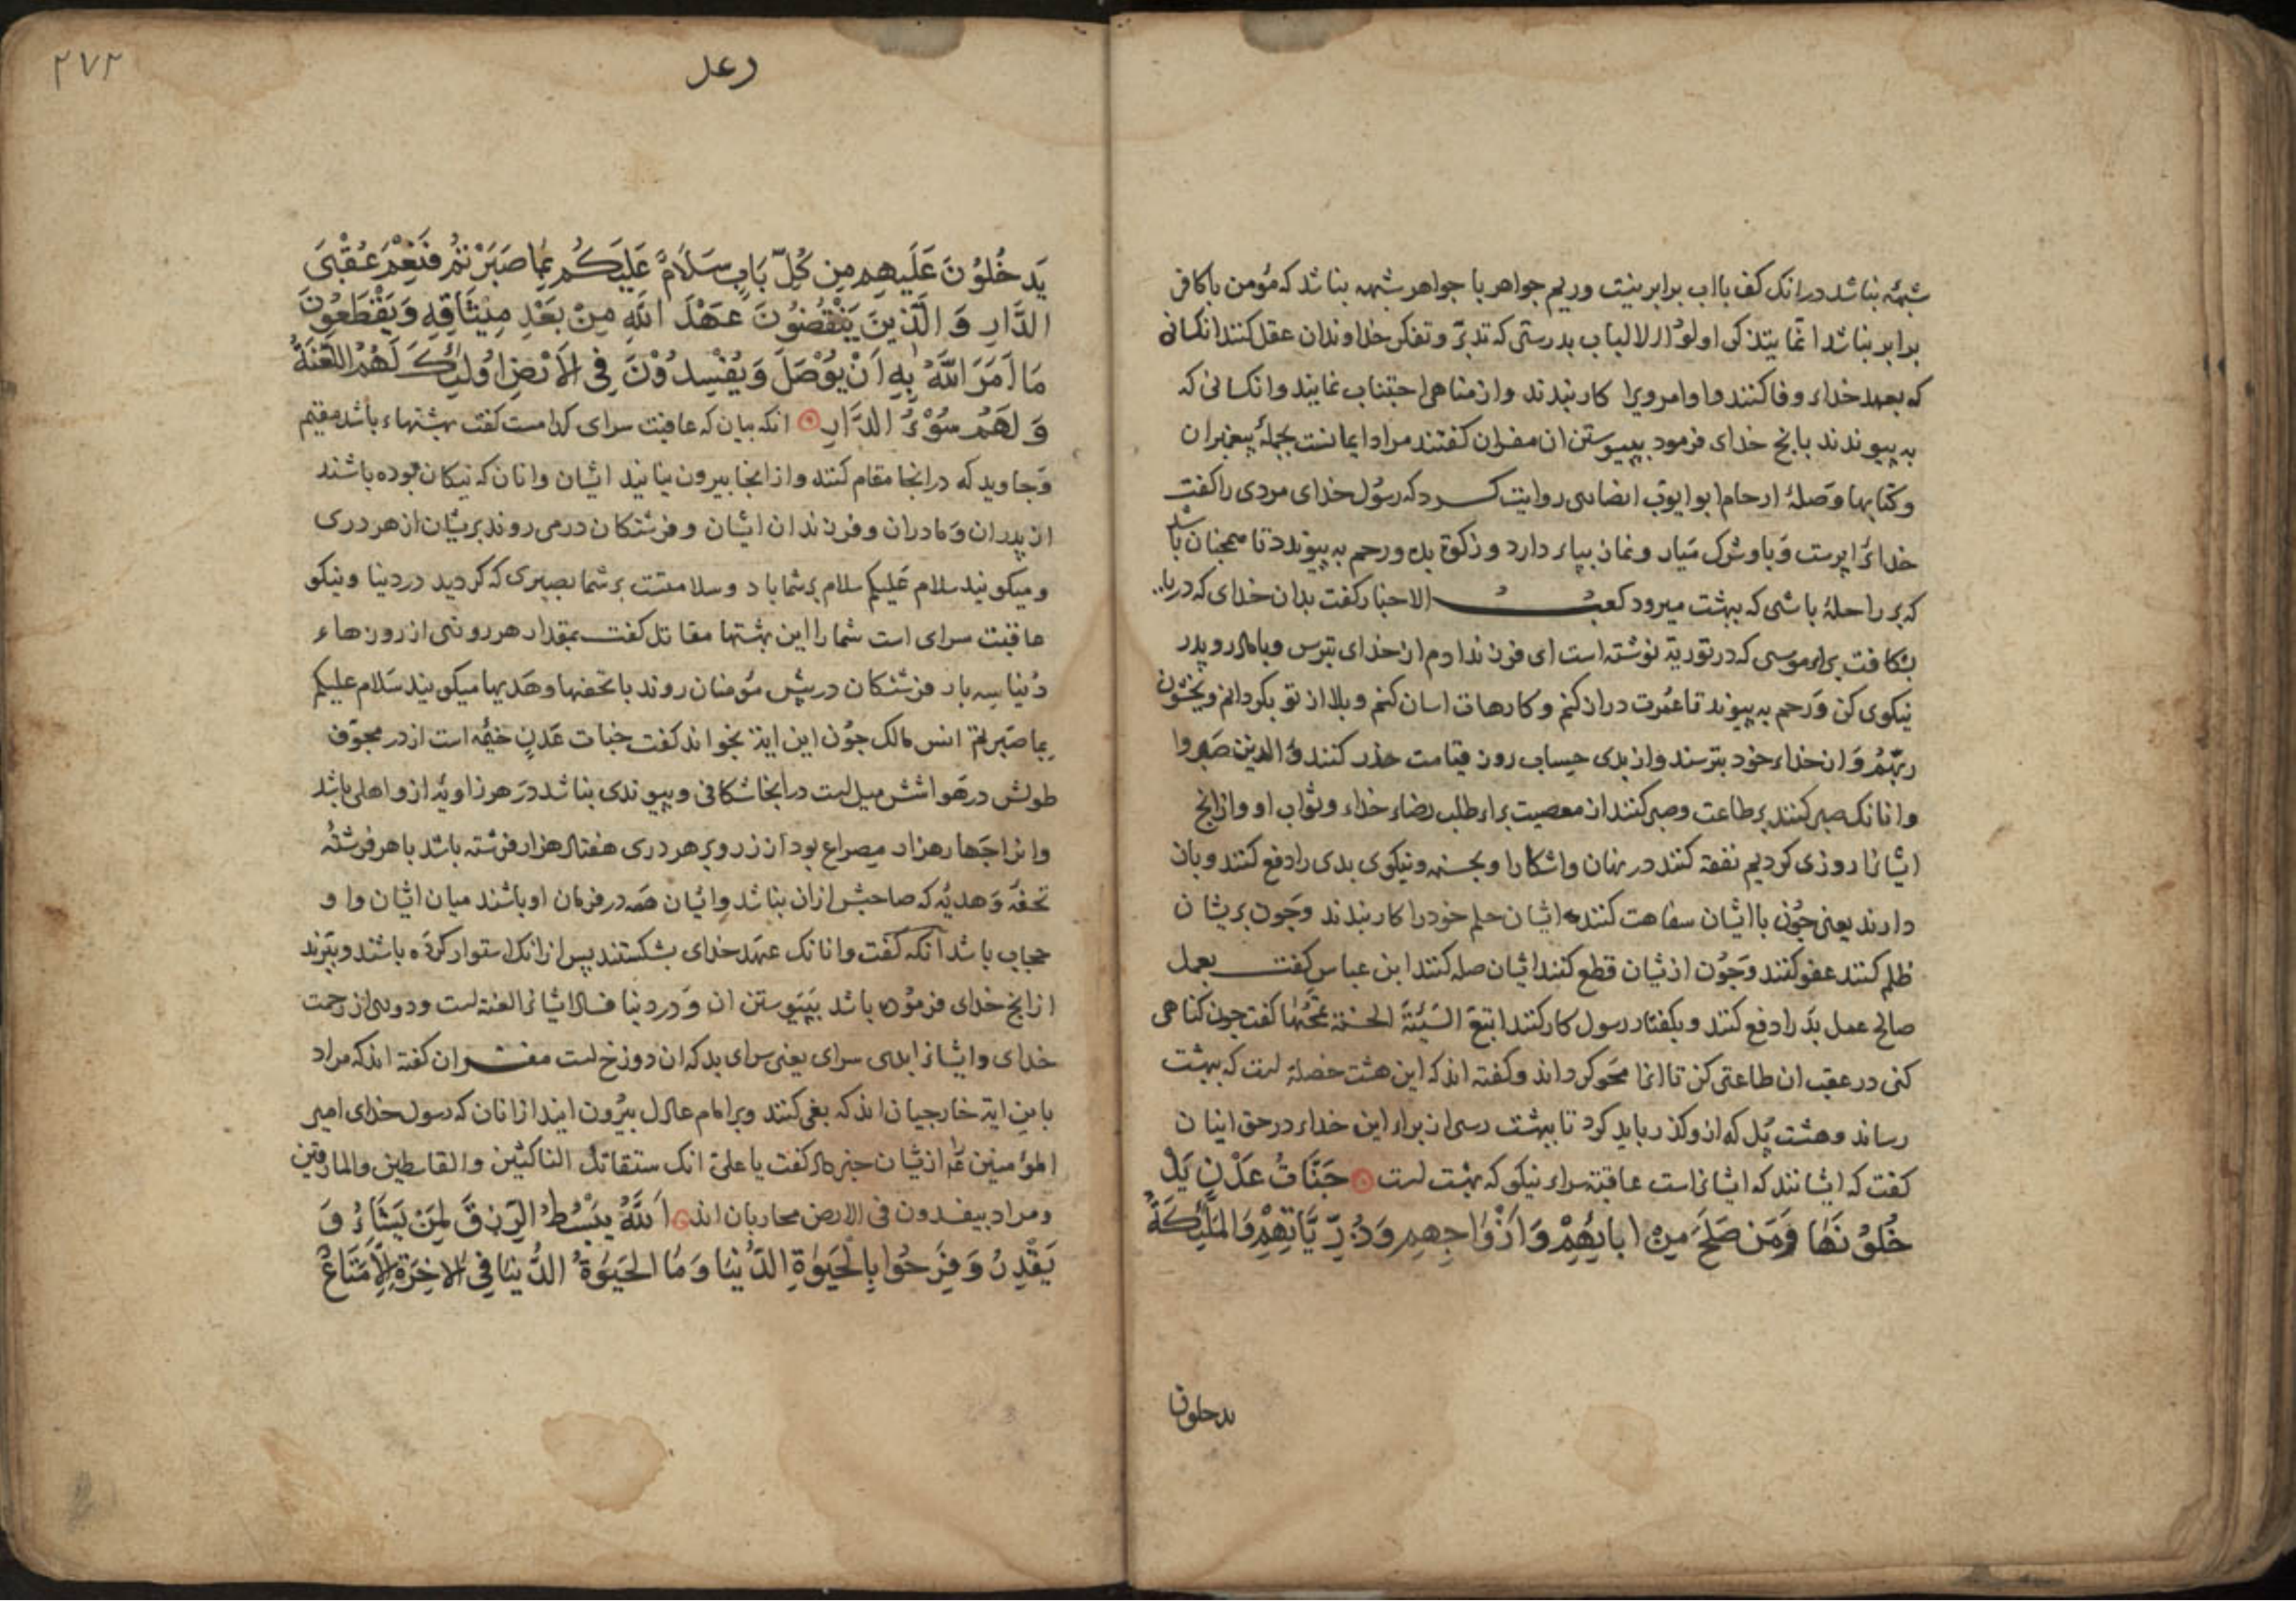 شبهه نباشد درانک کف بااب برابر نیست وریم جواهر با جواهر شبهه نباشد که مؤمن باکافر
برابر نباشد انّما یتذکر اولوا الالباب بدرستی که تدبّر وتفکر خداوندان عقل کنند انکسانی
که بعهد خداء وفا کنند واوامر ویرا کار بندند واز مناهی اجتناب نمایند وانکسانی که
به پیوندند بانچ خدای فرمود بپیوستن ان مفسران کفتند مراد ایمانست بجملهٔ پیغمبران
وکتابها وصلهٔ ارحام ابوایوب انصاری روایت کرد که رسول خدای مردی را کفت
خدایرا پرست وباوشرک میار ونماز بپاء دارد وزکوة بده ورحم به پیوندد تا همچنان باشد
که بر راحلهٔ باشی که ببهشت میرود کعب الاحبار کفت بدان خدای که دریا
بشکافت براء موسی که در توریة نوشته است ای فرزند ادم از خدای بترس وبامادر وپدر
نیکوی کن ورحم به پیوند تا عمرت دراز کنم وکارهات اسان کنم وبلا از تو بکردانم ویخشون
ربّهم واز خداء خود بترسند واز بدی حساب روز قیامت حذر کنند والذین صبروا
وانانک صبر کنند بر طاعت وصبر کنند از معصیت براء طلب رضاء خداء وثواب او وازانچ
ایشانرا روزی کردیم نفقه کنند در نهان واشکارا وبحسنه ونیکوی بدی را دفع کنند وبان
دارند یعنی چون باایشان سفاهت کنند ایشان حلم خود را کار بندند وچون بریشان
ظلم کنند عفو کنند وچون ازیشان قطع کنند ایشان صله کنند ابن عباس کفت بعمل
صالح عمل بد را دفع کنند وبکفتار رسول کار کنند اتبع السّیئة الحسنة تمحها کفت چون کناهی
کنی در عقب ان طاعتی کن تا انرا محو کرداند وکفته اند که این هشت خصلة است که ببهشت
رساند وهشت پل که ازو کذر باید کرد تا ببهشت رسی از براء این خداء در حق اینان
کفت که ایشانند که ایشانراست عاقبة سراء نیکو که بهشت است جَنَّاتُ عَدْنٍ یَدْ
خُلُوْنَهَا وَمَن صَلَحَ مِنْ ابائِهِمْ وَاَزْوَاجِهِم وَذُرِّیَّاتِهِمْ وَالمَلٰئِکَةُ
یدخلون
۲۷۲
رعد
یَدخُلُوْنَ عَلَیهِم مِن کُلِّ بَابٍ سَلَامٌ عَلَیکُم بِمَا صَبَرْتُم فَنِعْمَ عُقْبَی
الدَّارِ وَالَّذینَ یَنْقُضُونَ عَهْدَ اللهِ مِنْ بَعْدِ مِیْثَاقِهِ وَیَقْطَعُونَ
مَا اَمَرَ اللهُ بِهِ اَنْ یُوْصَلَ وَیُفْسِدُوْنَ فِی الاَرْضِ اُولٰئِکَ لَهُمُ اللَّعْنَةُ
وَلَهُم سُوْءُ الدَّارِ انکه بیان که عاقبت سرای کدامست کفت بهشتهاء باشد مقیم
وجاوید که درانجا مقام کنند وازانجا بیرون نیایند ایشان وانان که نیکان بوده باشند
از پدران ومادران وفرزندان ایشان وفرشتکان درمی روند بریشان از هر دری
ومیکویند سلام علیکم سلام بر شما باد وسلامتست بر شما بصبری که کردید در دنیا ونیکو
عاقبت سرای است شما را این بهشتها مقاتل کفت بمقدار هر روزی از روزهاء
دنیا سه بار فرشتکان در پیش مؤمنان روند باتحفها وهدیها میکویند سلام علیکم
بما صبرتم انس مالک چون این ایة بخواند کفت جنات عدن خیمه است از در مجوّف
طولش در هوا شش میل است درانجا شکافی وپیوندی نباشد در هر زاویهٔ ازو اهلی باشد
وانرا چهار هزار مصراع بود از زر وبر هر دری هفتاد هزار فرشته باشد باهر فرشتهٔ
تحفهٔ وهدیهٔ که صاحبش ازان نباشد وایشان همه در فرمان او باشند میان ایشان واو
حجاب باشد انکه کفت وانانک عهد خدای بشکستند پس ازانک استوار کرده باشند وببرند
ازانچ خدای فرموده باشد بپیوستن ان ودر دنیا فساد ایشانرا لعنة است ودوری از رحمت
خدای وایشانرا بدی سرای یعنی سرای بد که ان دوزخ است مفسران کفته اند که مراد
باین ایة خارجیان اند که بغی کنند وبر امام عادل بیرون ایند ازانان که رسول خدای امیر
المؤمنین را ازیشان خبر داد کفت یا علی انک ستقاتل الناکثین والقاسطین والمارقین
ومراد بیفسدون فی الارض محاربان اند اَللهُ یَبْسُطُ الرِّزقَ لِمَنْ یَشَاءُ وَ
یَقْدِرُ وَفَرِحُوا بِالْحَیٰوةِ الدُّنْیَا وَمَا الحَیٰوةُ الدُّنْیَا فِی الاخِرَةِ اِلَّا مَتَاعٌ